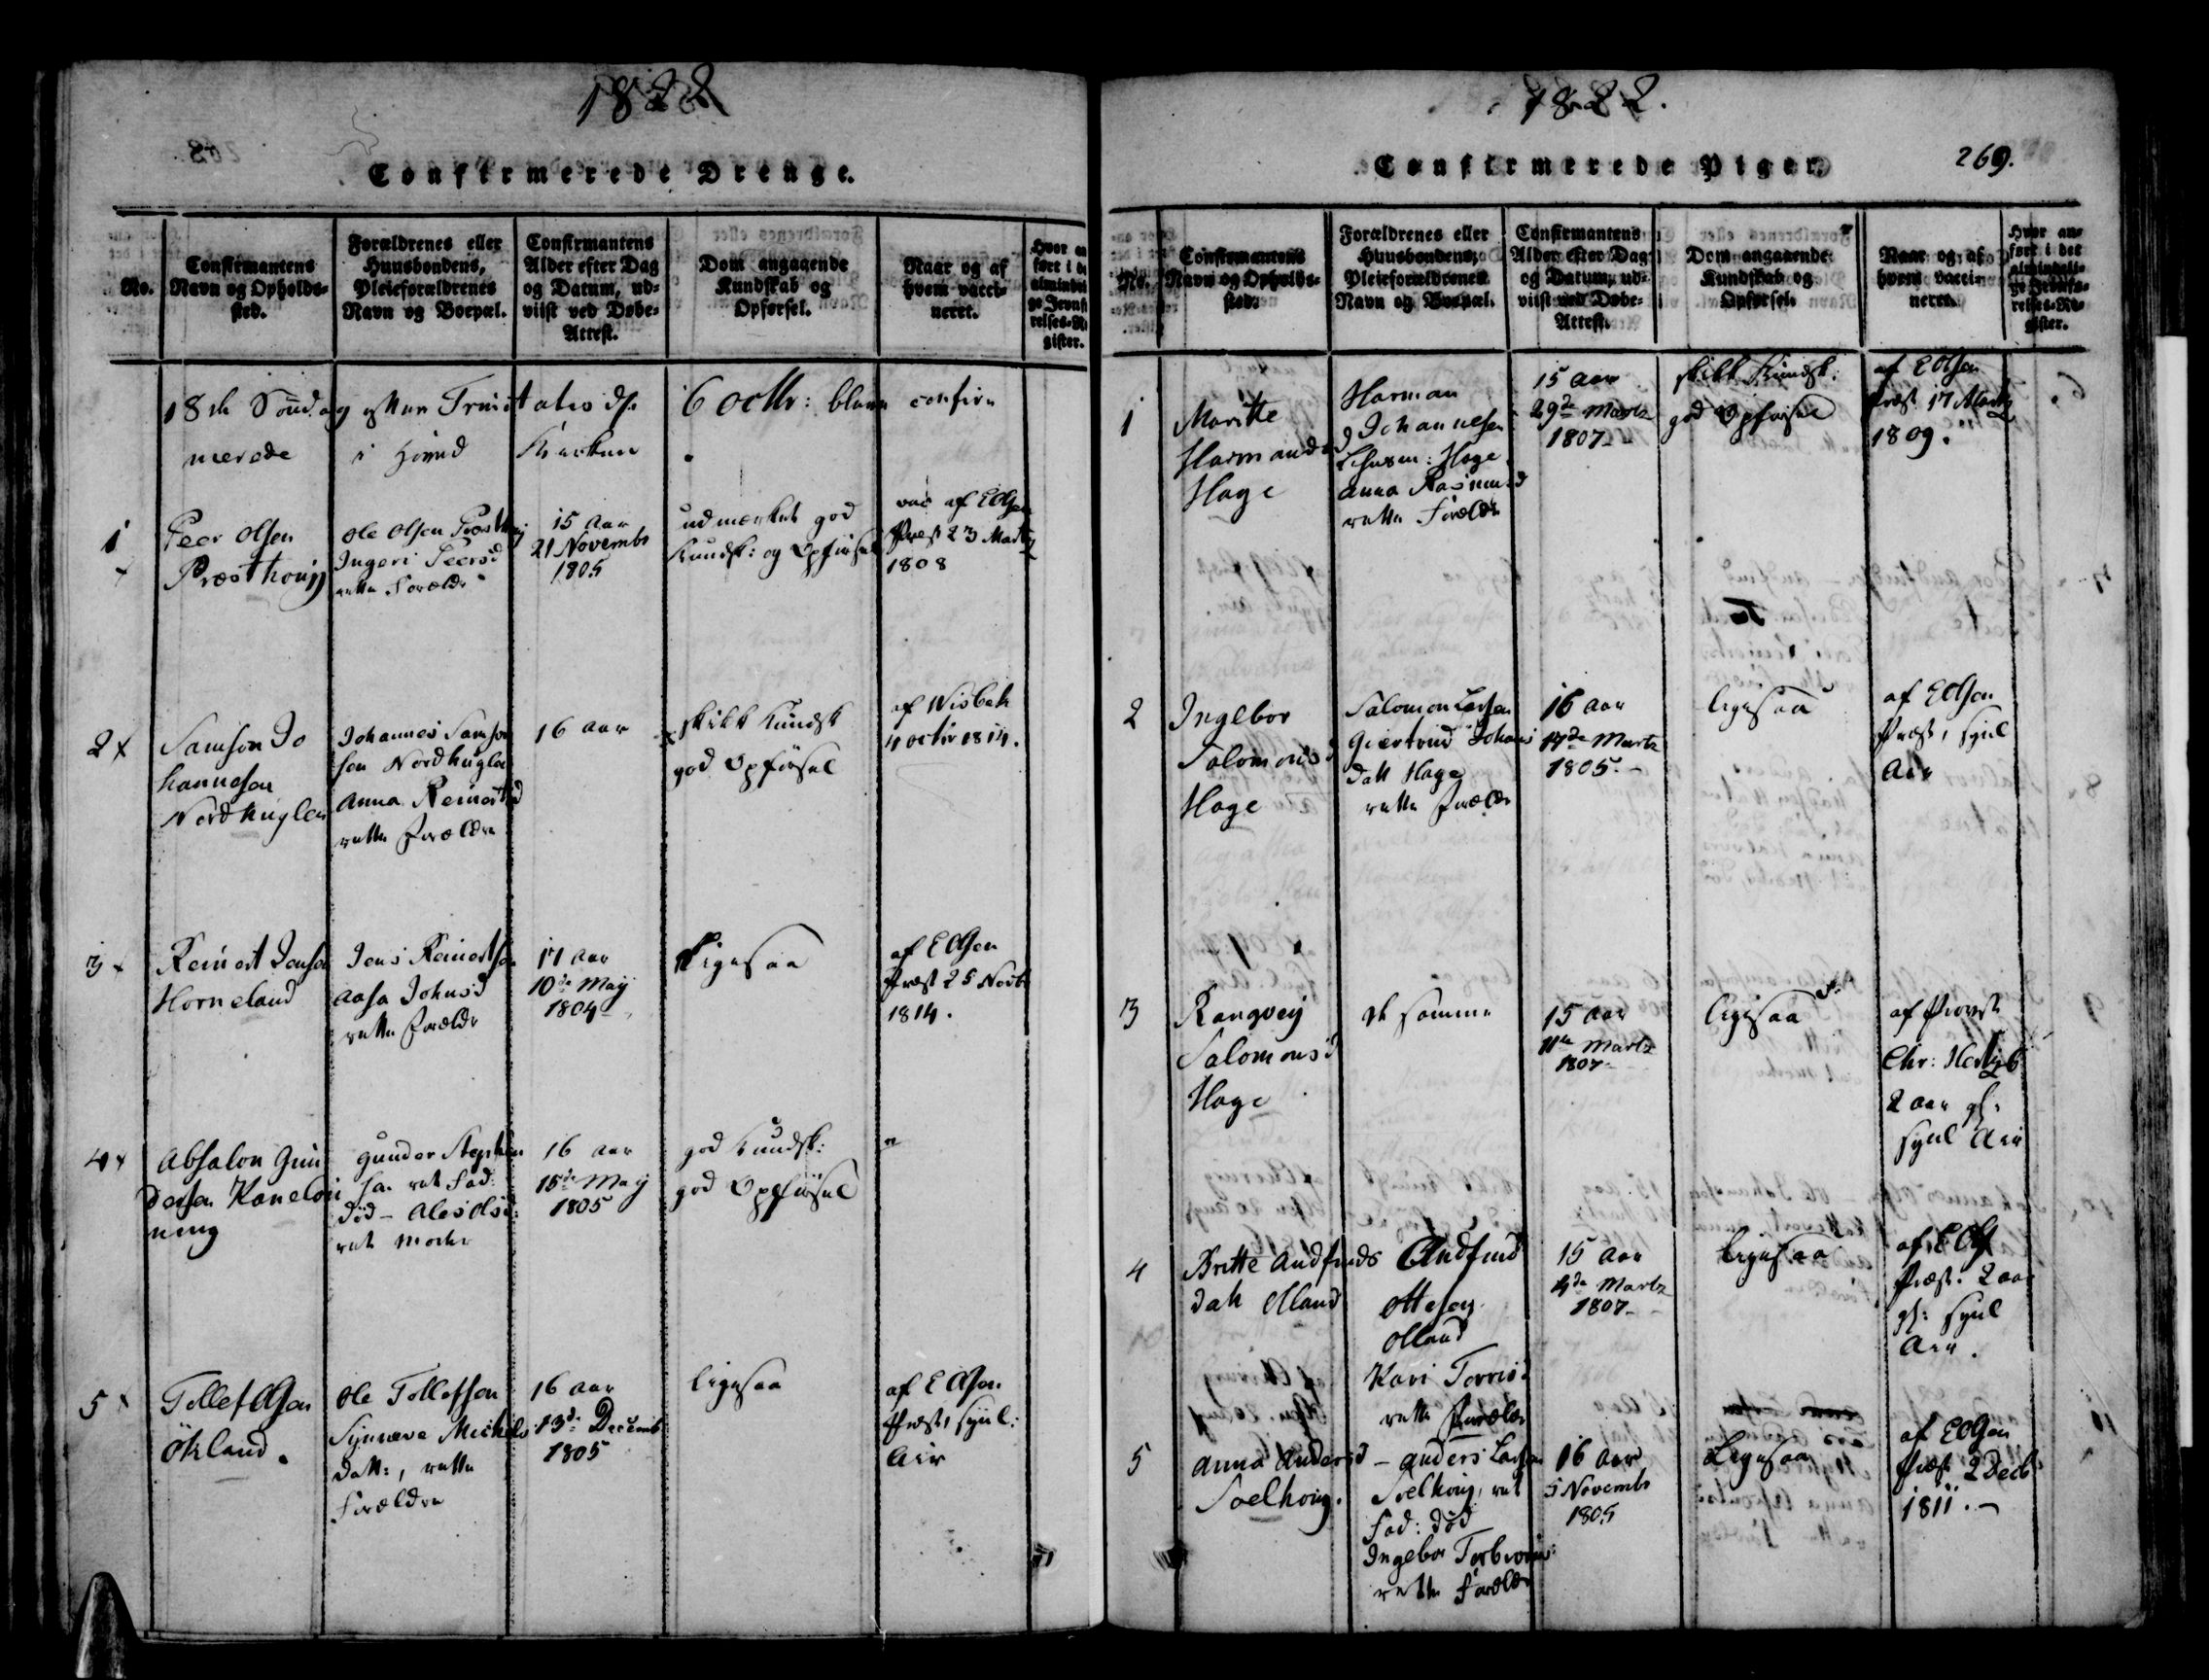 1822
Confirmerede Drenge.
No.
Confirmantens
Navn og Opholds-
sted.
Forældrenes eller
Huusbondens,
Pleieforældrenes
Navn og Boepæl.
Confirmantens
Alder efter Dag
og Datum, ud-
viist ved Døbe-
Attest.
Dom angaaende
Kundskab og
Opførsel.
Naar og af
hvem vacci-
neret.
18de Søndag efter Trinitatis d. 6 octbr: blev confir
merede i Kirken
1
Peer Olsen
Præsthoug
Ole Olsen Præsthoug
Ingeri Peersd
rette Forældr
15 Aar
21 Novembr
1805
udmærket god
Kundsk: og Opførsel
vac af E Olsen
Præst 23 Martz
1808
2 x
Samson Jo
hannesen
Nordhuglen
Johannes Samson
sen Nordhuglen
Anna Reinertsd
rette Forældre
16 aar
skikk Kundsk
god Opførsel
af Nisbeth
4 octbr 1814.
3 x
Reinert Jensen
Horneland
Jens Reinertsen
Aasa Johnsd
rette Forældr
17 Aar
10de May
1804
Ligesaa
af E Olsen
Præst 25 Novb
1814.
4 x
Absalon Gun
dersen
Gunder Stephen
sen ret Fad:
død - Ales Olsd:
ret Moder
16 aar
15de May
1805
god Kundsk:
god Opførsel
"
5 x
Tollef Olsen
Økland.
Ole Tollefsen
Synneve Michels
datt:, rette
Forældre
16 Aar
13de Decemb
1805
ligesaa
af E Olsen
Præst,
1822.
Confirmerede Piger.
269.
No.
Confirmantens
Navn og Opholds-
sted.
Forældrenes eller
Huusbondens,
Pleieforældrenes
Navn og Boepæl.
Confirmantens
Alder efter Dag
og Datum, ud-
viist ved Døbe-
Attest.
Dom angaaende
Kundskab og
Opførsel.
Naar og af
hvem vacci-
neret.
Hvor an-
ført i det
almindeli-
ge Jevnfø-
relses-Re-
gister.
1
Maritte
Harmands
Hage
Harman
Johannesen
Hage
Anna Rasmusd
rette Forældr
15 aar
29de Martz
1807
skikk Kundsk:
god Opførsel
af E Olsen
Præst 17 Martz
1809.
2
Ingebor
Salomonsd
Hage
Salomon Larsen
Giertrud Johans
datt Hage
rette Forældr
16 aar
17de Martz
1805.
ligesaa
af E Olsen
Præst,
3
Rangvey
Salomonsd
Hage
de samme
15 aar
11de Martz
1807
ligesaa
af Provst
Chr: Hertzb
2 aar gl:
4
Britte Andfinds
datt Olland
Andfind
Ottesen
Olland
Kari Torrisd
rette Forældr
15 Aar
4de Martz
1807
ligesaa
af E Ols
Præst. 2 aar
gl:
5
Anna Andersd
Soelhoug.
Anders Larsen
Soelhoug, ret
Fad: død
Ingebor Torbiørns:
rette Forældr
16 aar
5 Novembr
1805
Ligesaa
af E Olsen
Præst 2 Decb
1811.